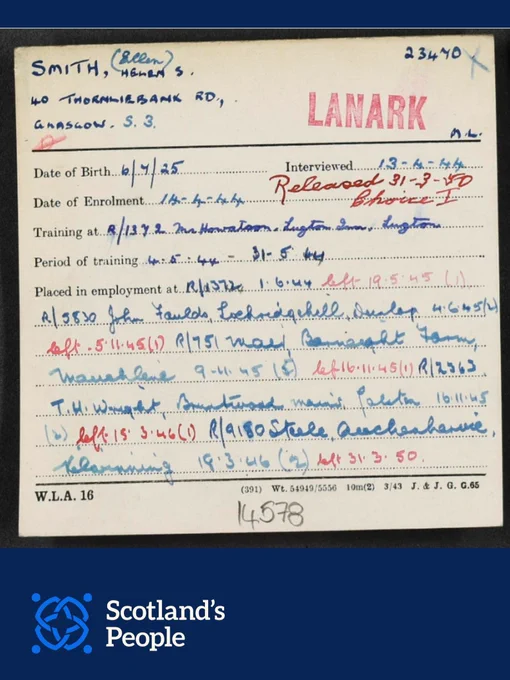 (Ellen) 23470 X
SMITH, HELEN S.
40 THORNLIEBANK RD,
GLASGOW. S. 3.
LANARK
M.L.
Date of Birth 6/7/25 Interviewed 13-4-44
Released 31-3-50
Choice I
Date of Enrolment 14-4-44
Training at R/1372 Mrs Howatson, Lugton Inn, Lugton
Period of training 4.5.44 - 31.5.44
Placed in employment at R/1372 1.6.44 left 19.5.45 (1)
R/5830 John Faulds, Lochridgehill, Dunlop 4.6.45(2)
left 5.11.45(1) R/751 Farm,
Mauchline 9-11-45 (5) left 16.11.45(1) R/2363
T.H. Wright, Burntwood Galston 16.11.45
(2) left 15.3.46(1) R/9180 Steele, Auchenharvie,
19.3.46 (2) left 31.3.50.
W.L.A. 16 (391) Wt. 54949/5556 10m(2) 3/43 J. & J. G. G.65
14578
Scotland's
People